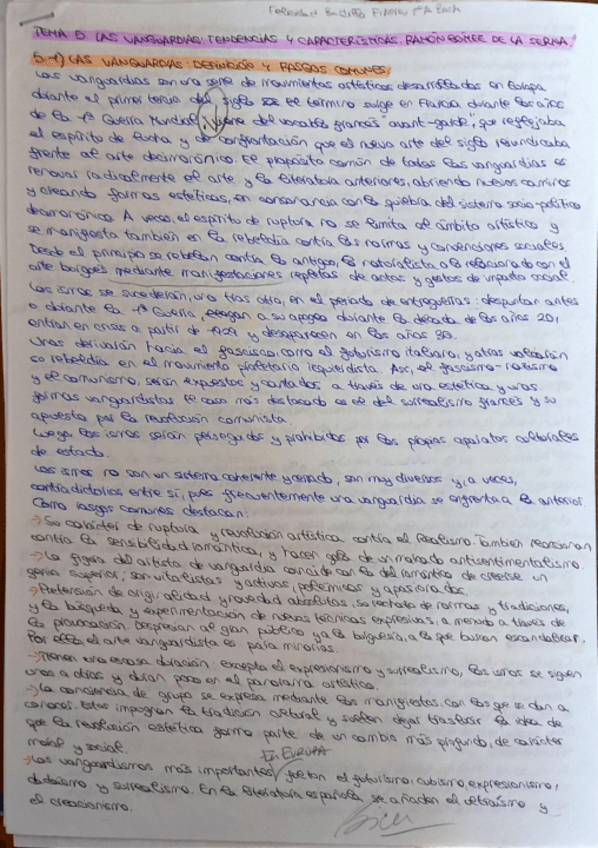 TEMA 5. LAS VANGUARDIAS: TENDENCIAS Y CARACTERÍSTICAS. RAMÓN GÓMEZ DE LA SERNA.
5.1) LAS VANGUARDIAS: DEFINICIÓN Y RASGOS COMUNES
Las vanguardias son una serie de movimientos artísticos desarrollados en Europa
durante el primer tercio del siglo XX. El término surge en Francia durante los años
de la 1ª Guerra Mundial. Viene del vocablo francés "avant-garde", que reflejaba
el espíritu de lucha y de confrontación que el nuevo arte del siglo reivindicaba
frente al arte decimonónico. El propósito común de todas las vanguardias es
renovar radicalmente el arte y la literatura anteriores, abriendo nuevos caminos
y creando formas estéticas, en consonancia con la quiebra del sistema socio-político
decimonónico. A veces, el espíritu de ruptura no se limita al ámbito artístico y
se manifiesta también en la rebeldía contra las normas y convenciones sociales.
Desde el principio se rebelan contra lo antiguo, lo naturalista o lo relacionado con el
arte burgués mediante manifestaciones repletas de actos y gestos de impacto social.
Los ismos se sucederán, uno tras otro, en el periodo de entreguerras: despuntan antes
o durante la 1ª Guerra, llegan a su apogeo durante la década de los años 20,
entran en crisis a partir de 1929 y desaparecen en los años 30.
Unos derivarán hacia el fascismo, como el futurismo italiano, y otros
su rebeldía en el movimiento proletario izquierdista. Así, el fascismo-nazismo
y el comunismo, serán expuestos y cantados a través de una estética y unas
formas vanguardistas. El caso más destacado es el del surrealismo francés y su
apuesta por la revolución comunista.
Luego los ismos serán perseguidos y prohibidos por los propios aparatos culturales
de estado.
Los ismos no son un sistema coherente y cerrado, son muy diversos y, a veces,
contradictorios entre sí, pues frecuentemente una vanguardia se enfrenta a la anterior.
Como rasgos comunes destacan:
→ Su carácter de ruptura y revolución artística contra el Realismo. También reaccionan
contra la sensibilidad romántica, y hacen gala de un marcado antisentimentalismo.
→ La figura del artista de vanguardia coincide con la del romántico de creerse un
genio superior; son vitalistas y activos, polémicos y apasionados.
→ Pretensión de originalidad y novedad absolutas, su rechazo de normas y tradiciones,
y la búsqueda y experimentación de nuevas técnicas expresivas, a menudo a través de
la provocación. Desprecian al gran público y a la burguesía, a la que buscan escandalizar.
Por ello, el arte vanguardista es para minorías.
→ Tienen una escasa duración: excepto el expresionismo y surrealismo, los ismos se siguen
unos a otros y duran poco en el panorama artístico.
→ La conciencia de grupo se expresa mediante los manifiestos, con los que se dan a
conocer. Estos impugnan la tradición cultural y suelen dejar traslucir la idea de
que la revolución estética forma parte de un cambio más profundo, de carácter
moral y social.
EN EUROPA
→ Los vanguardismos más importantes fueron el futurismo, cubismo, expresionismo,
dadaísmo y surrealismo. En la literatura española se añaden el ultraísmo y
el creacionismo.